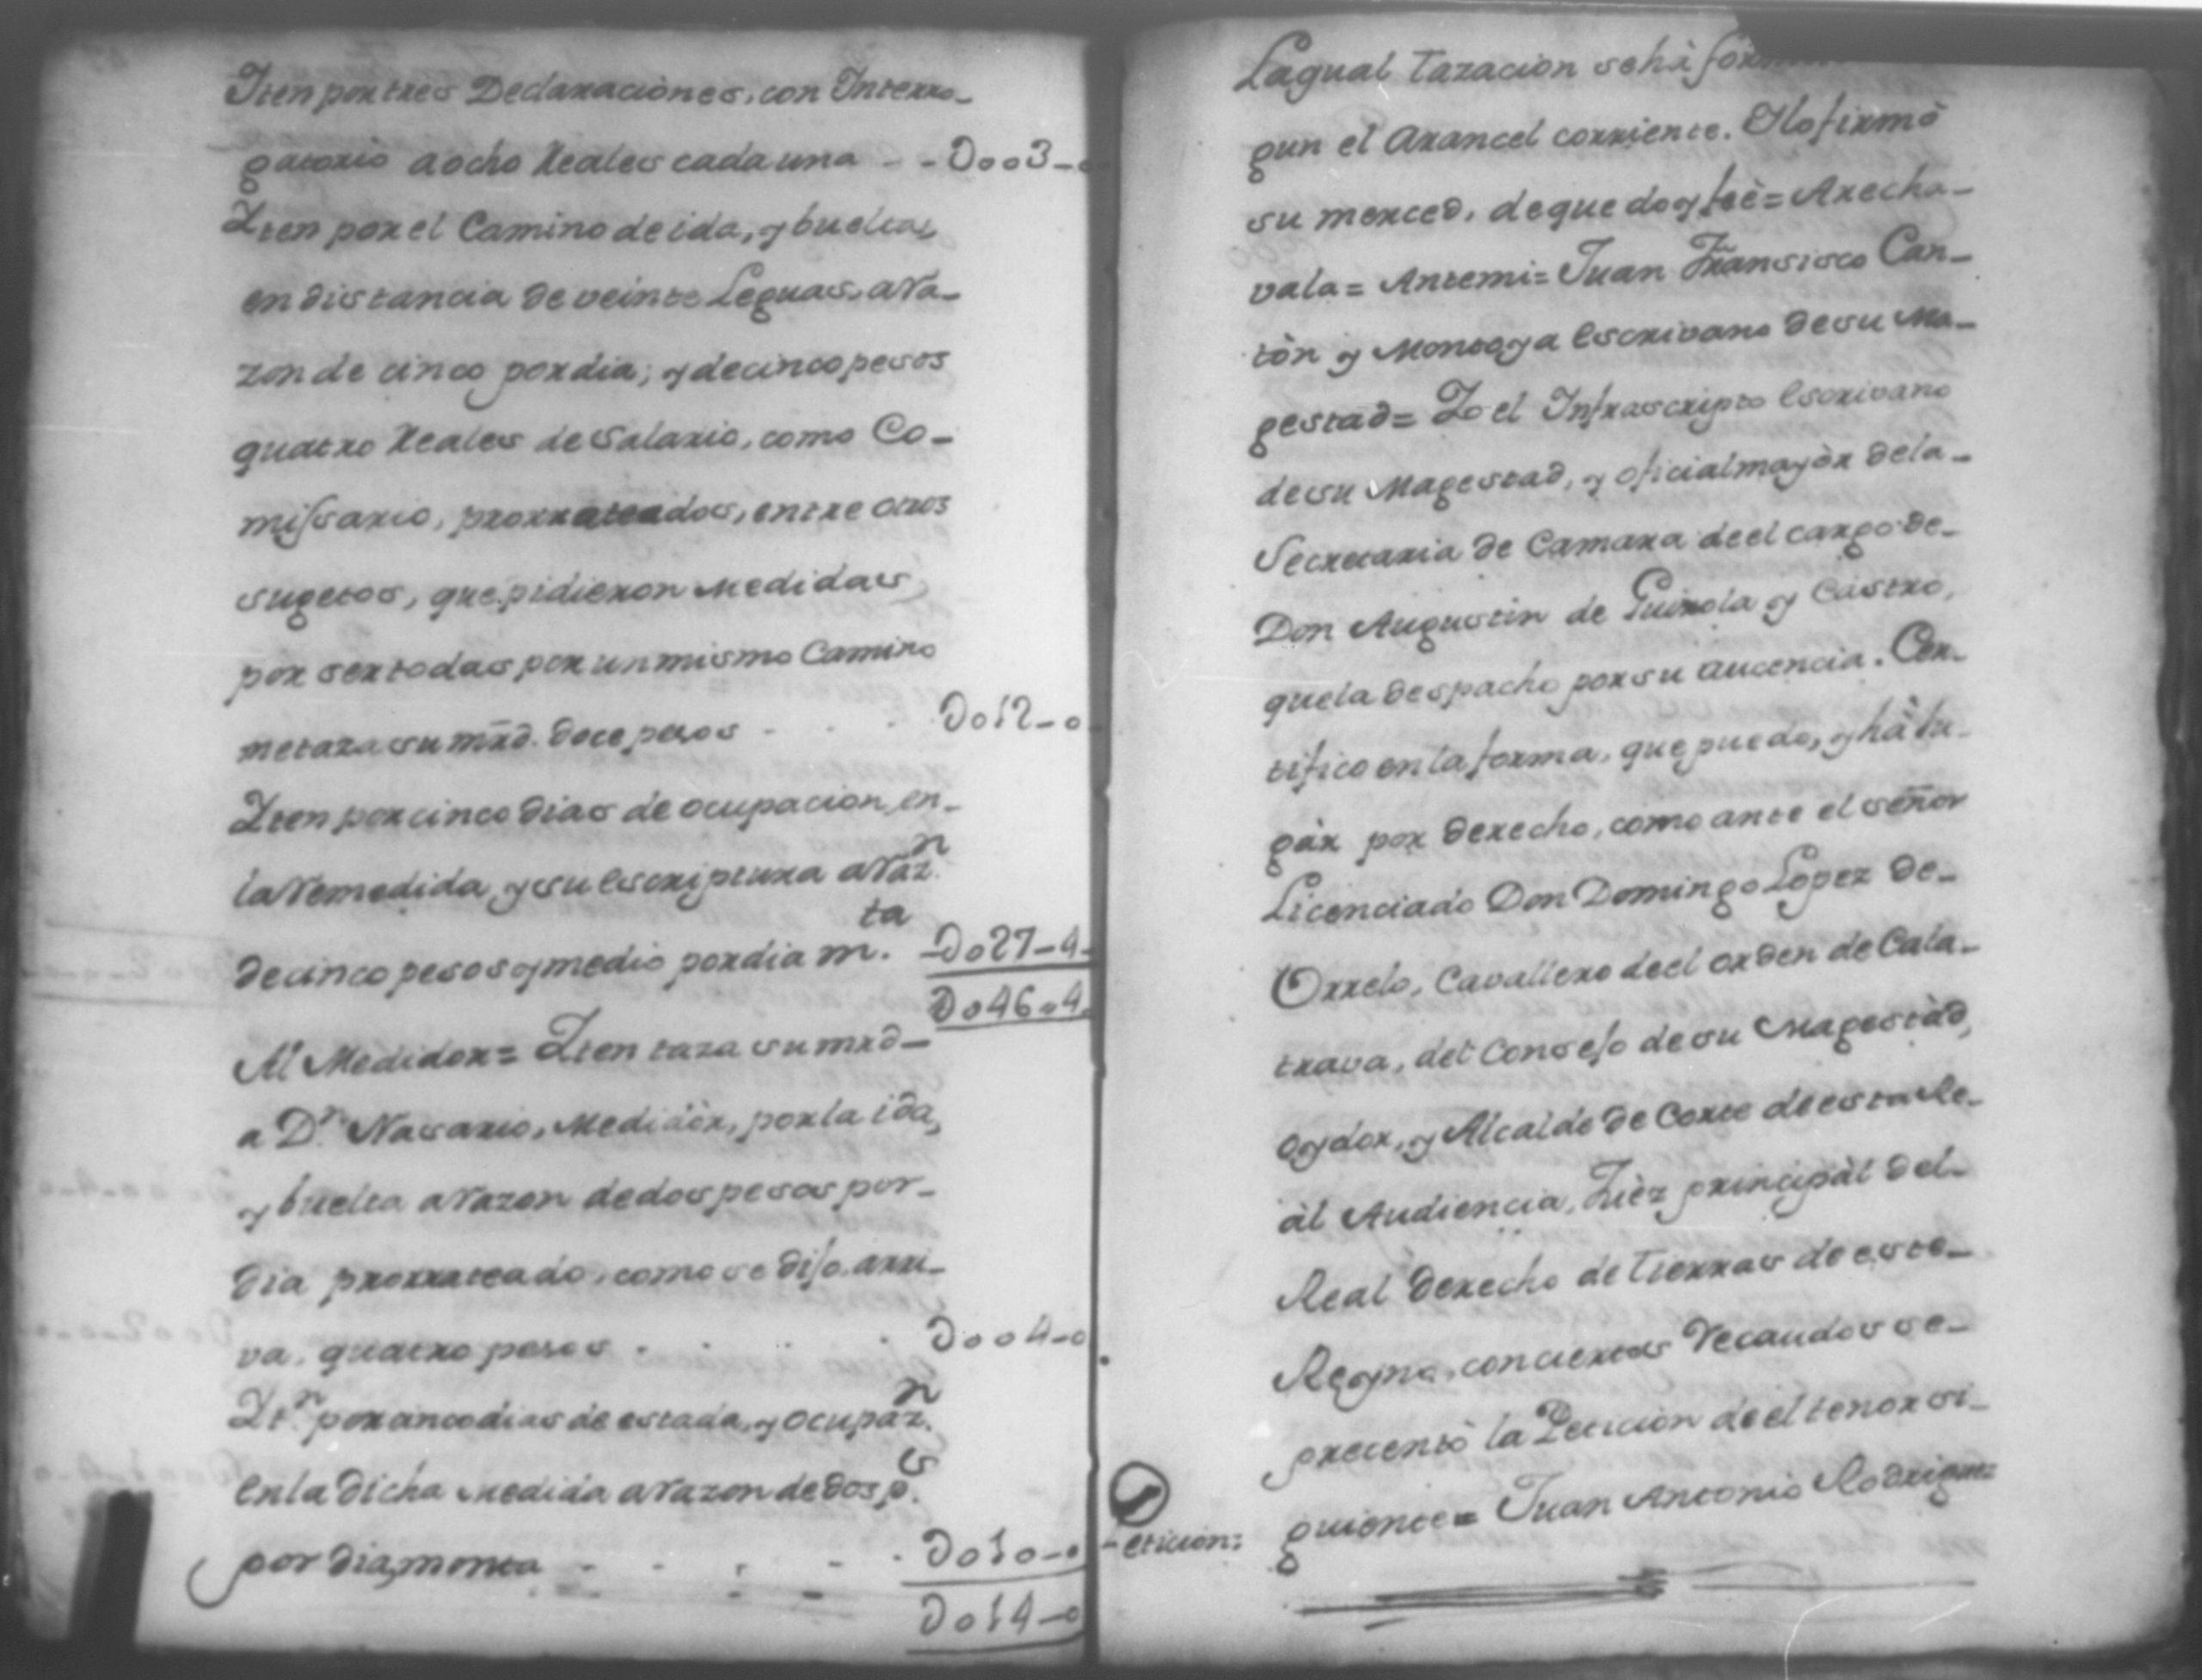 Iten por tres Declaraciones, con Interro-
gatorio a ocho Reales cada una - - D003-0
Iten por el Camino de ida, y buelta,
en distancia de veinte Leguas, a ra-
zon de cinco por dia; y de cinco pesos
quatro Reales de Salario, como Co-
missario, prorrateados, entre otros
sugetos, que pidieron Medidas,
por ser todas por un mismo Camino
me taza su mrd. doce pesos - . . D012-0
Iten por cinco dias de ocupacion, en-
la remedida, y su Escriptura a raz.n
de cinco pesos y medio por dia m.ta - D027-4-
D046-4.
Al Medidor= Iten taza su mrd-
a D.n Nasario, Medidòr, por la ida,
y buelta a razon de dos pesos por-
dia prorrateado, como se dijo arri-
va, quatro pesos . . . . D004-0
It.n por cinco dias de estada, y ocupaz.n
en la dicha Medida a razon de dos p.s
por dia, monta - . . - . D010-0
D014-0
La qual Tazacion se hà
gun el Arancel corriente. I lo firmò
su merced, de que doy feè= Arecha-
vala= Ante mi= Juan Fransisco Can-
tòn y Montoya Escrivano de su Ma-
gestad= Io el Infrascripto Escrivano
de su Magestad, y oficial mayòr de la-
Secretaria de Camara de el cargo de-
Don Augustin de Guirola y Castro,
que la despacho por su aucencia. Cer-
tifico en la forma, que puedo, y hà lu-
gàr por derecho, como ante el señor
Licenciado Don Domingo Lopez de-
Orrelo, Cavallero de el orden de Cala-
trava, del Consejo de su Magestàd,
Oydor, y Alcalde de Corte de esta Re-
àl Audiencia, Juèz principàl del-
Real derecho de tierras de este-
Reyno, con ciertos recaudos se-
precentò la Peticion de el tenor si-
Peticion= guiente= Juan Antonio Rodriguez